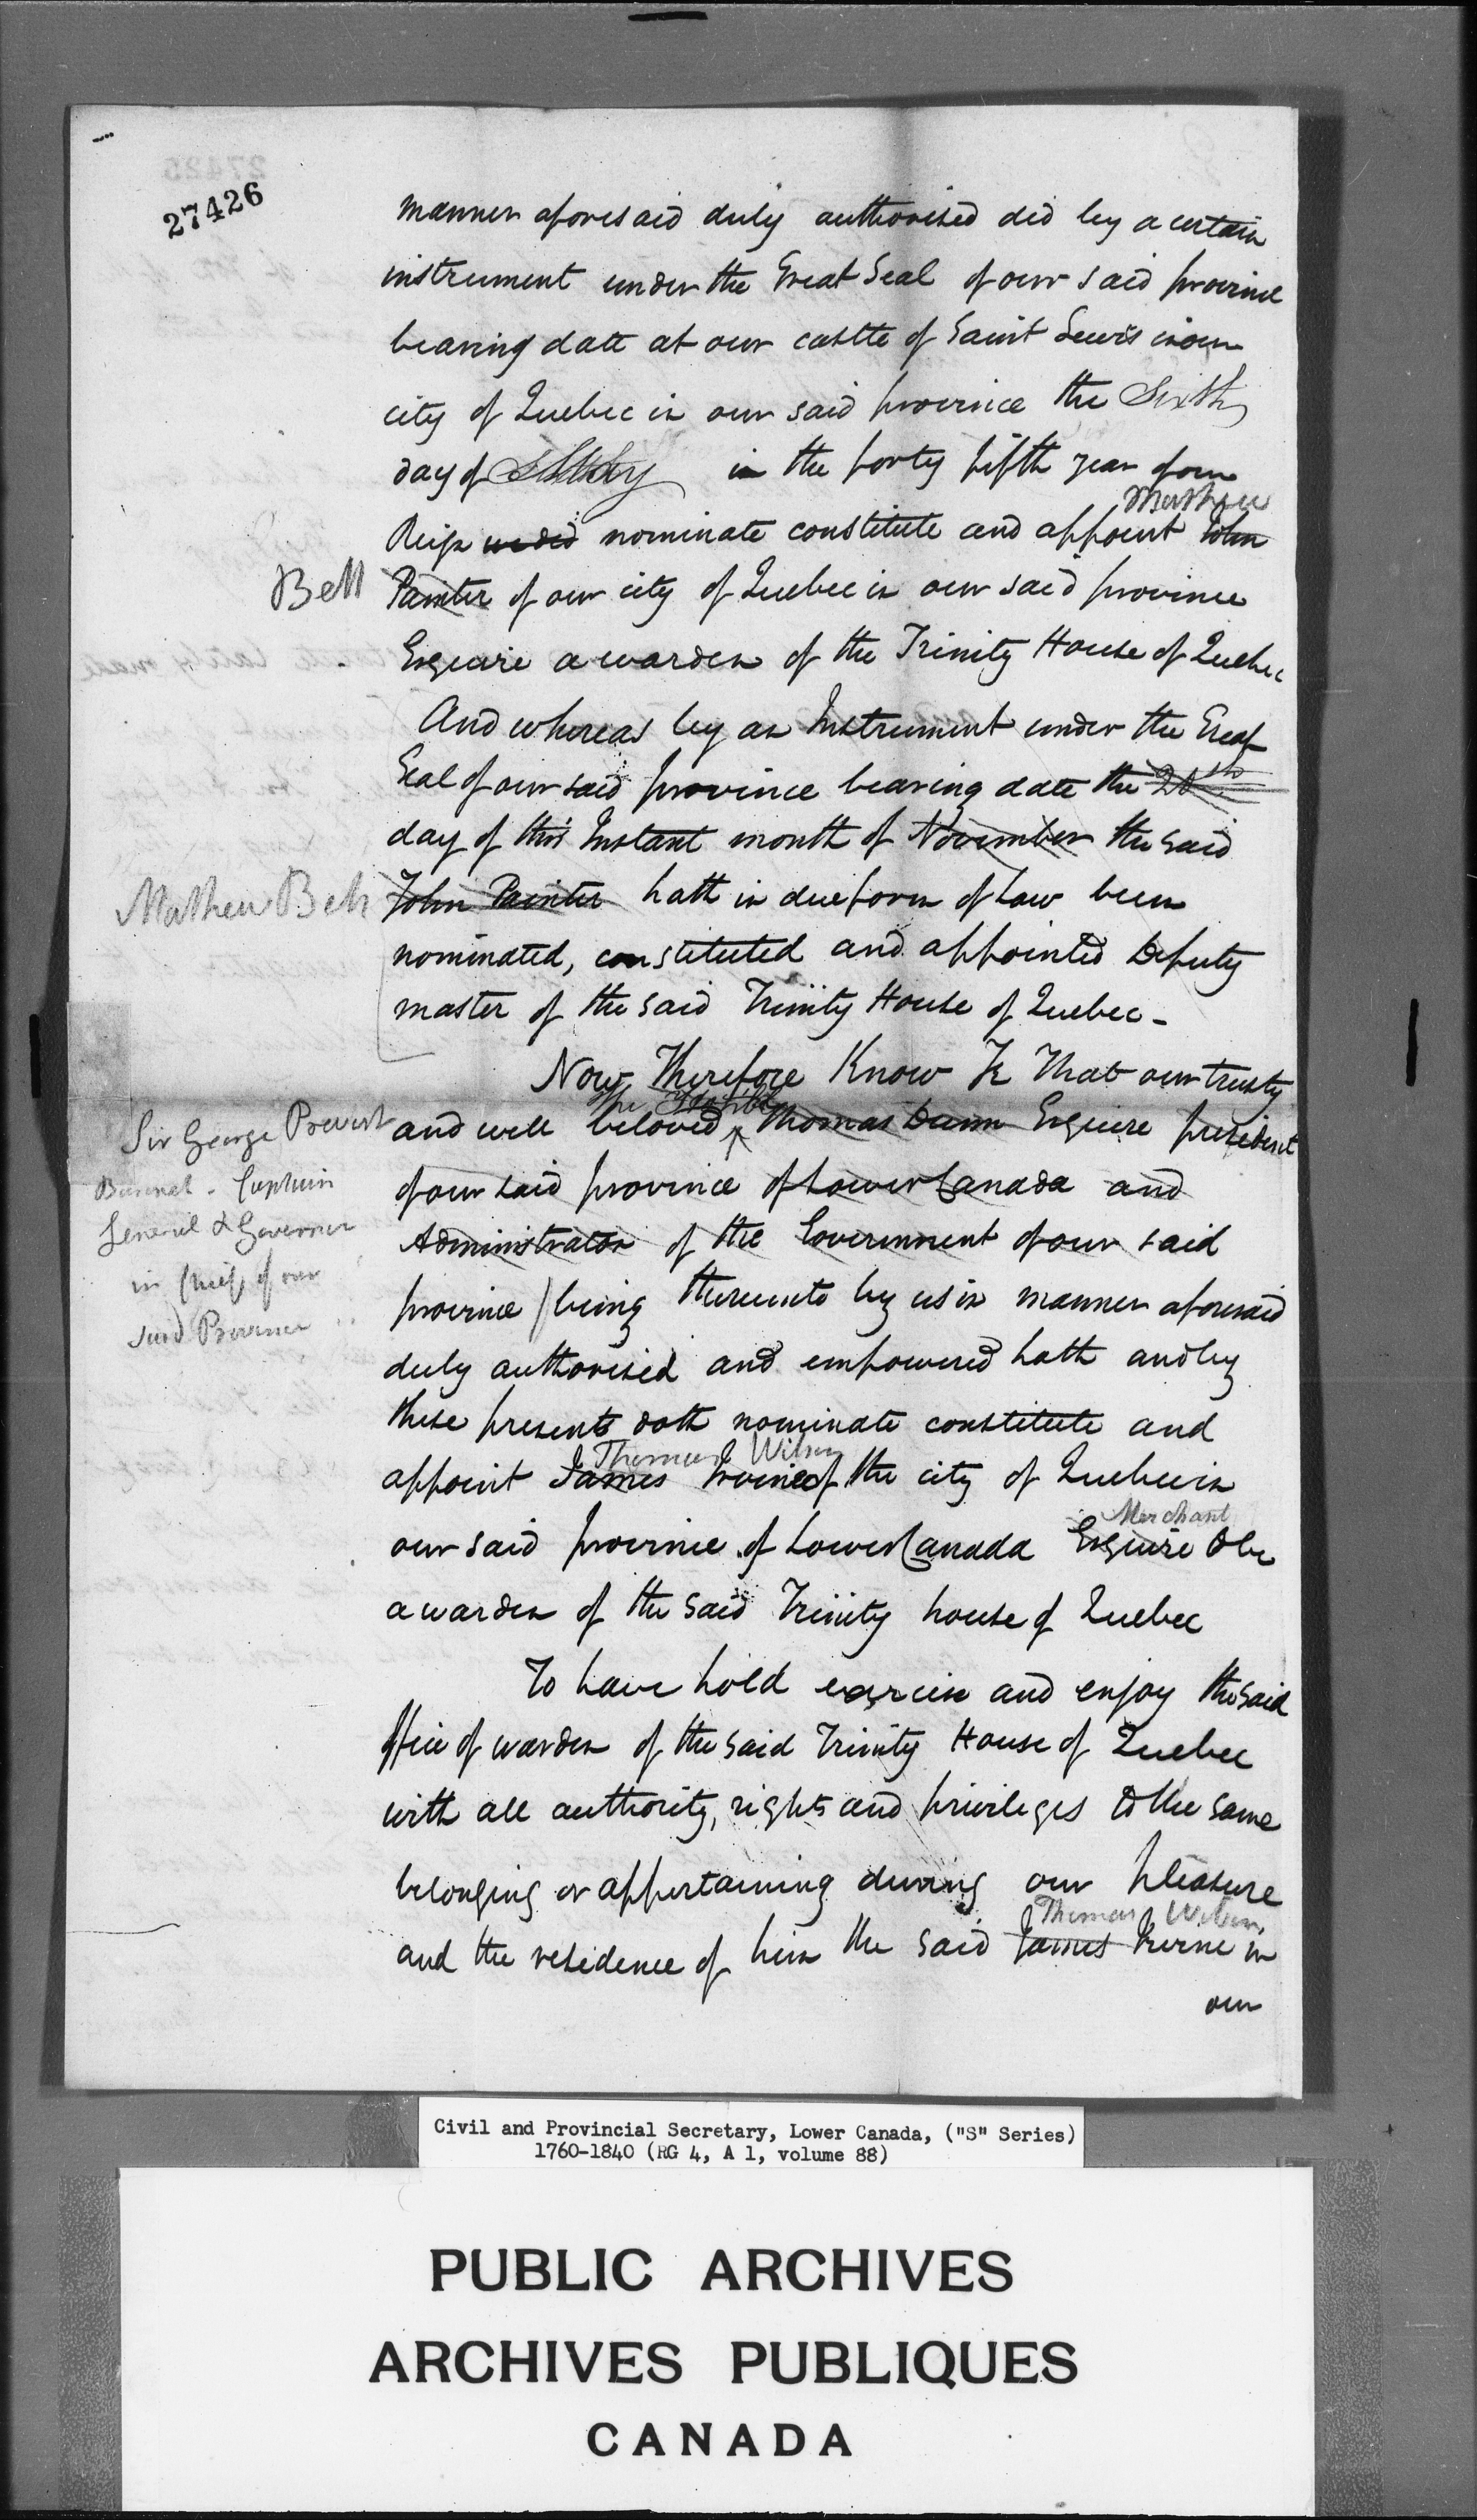 27426
manner aforesaid duly authorised did by a certain
instrument under the Great Seal of our said province
bearing date at our castle of Saint Lewis in our
city of Quebec in our said province the Sixth
day of in the forty fifth year of our
Mathew
Reign we did nominate constitute and appoint John
Bell
Painter of our city of Quebec in our said province
Esquire a warden of the Trinity House of Quebec
And whereas by an Instrument under the Great
Seal of our said province bearing date the 20th
day of this Instant month of November the said
Mathew Bell
John Painter hath in due form of Law been
nominated, constituted and appointed Deputy
master of the said Trinity House of Quebec -
Now Therefore Know Ye That our trusty
Sir George Prevost
Baronet - Captain
General & Governor
in Chief of our
said Province
and well beloved The Thomas Dunn Esquire president
of our said province of Lower Canada and
Administrator of the Government of our said
province being thereunto by us in manner aforesaid
duly authorised and empowered hath and by
these presents doth nominate constitute and
Thomas Wilson
appoint James Irvine of the city of Quebec in
Merchant
our said province of Lower Canada Esquire to be
a warden of the said Trinity house of Quebec
To have hold exercise and enjoy the said
office of warden of the said Trinity House of Quebec
with all authority, rights and privileges to the same
belonging or appertaining during our pleasure
Thomas Wilson
and the residence of him the said James Irvine in
our
Civil and Provincial Secretary, Lower Canada, ("S" Series)
1760-1840 (RG 4, A 1, volume 88)
PUBLIC ARCHIVES
ARCHIVES PUBLIQUES
CANADA